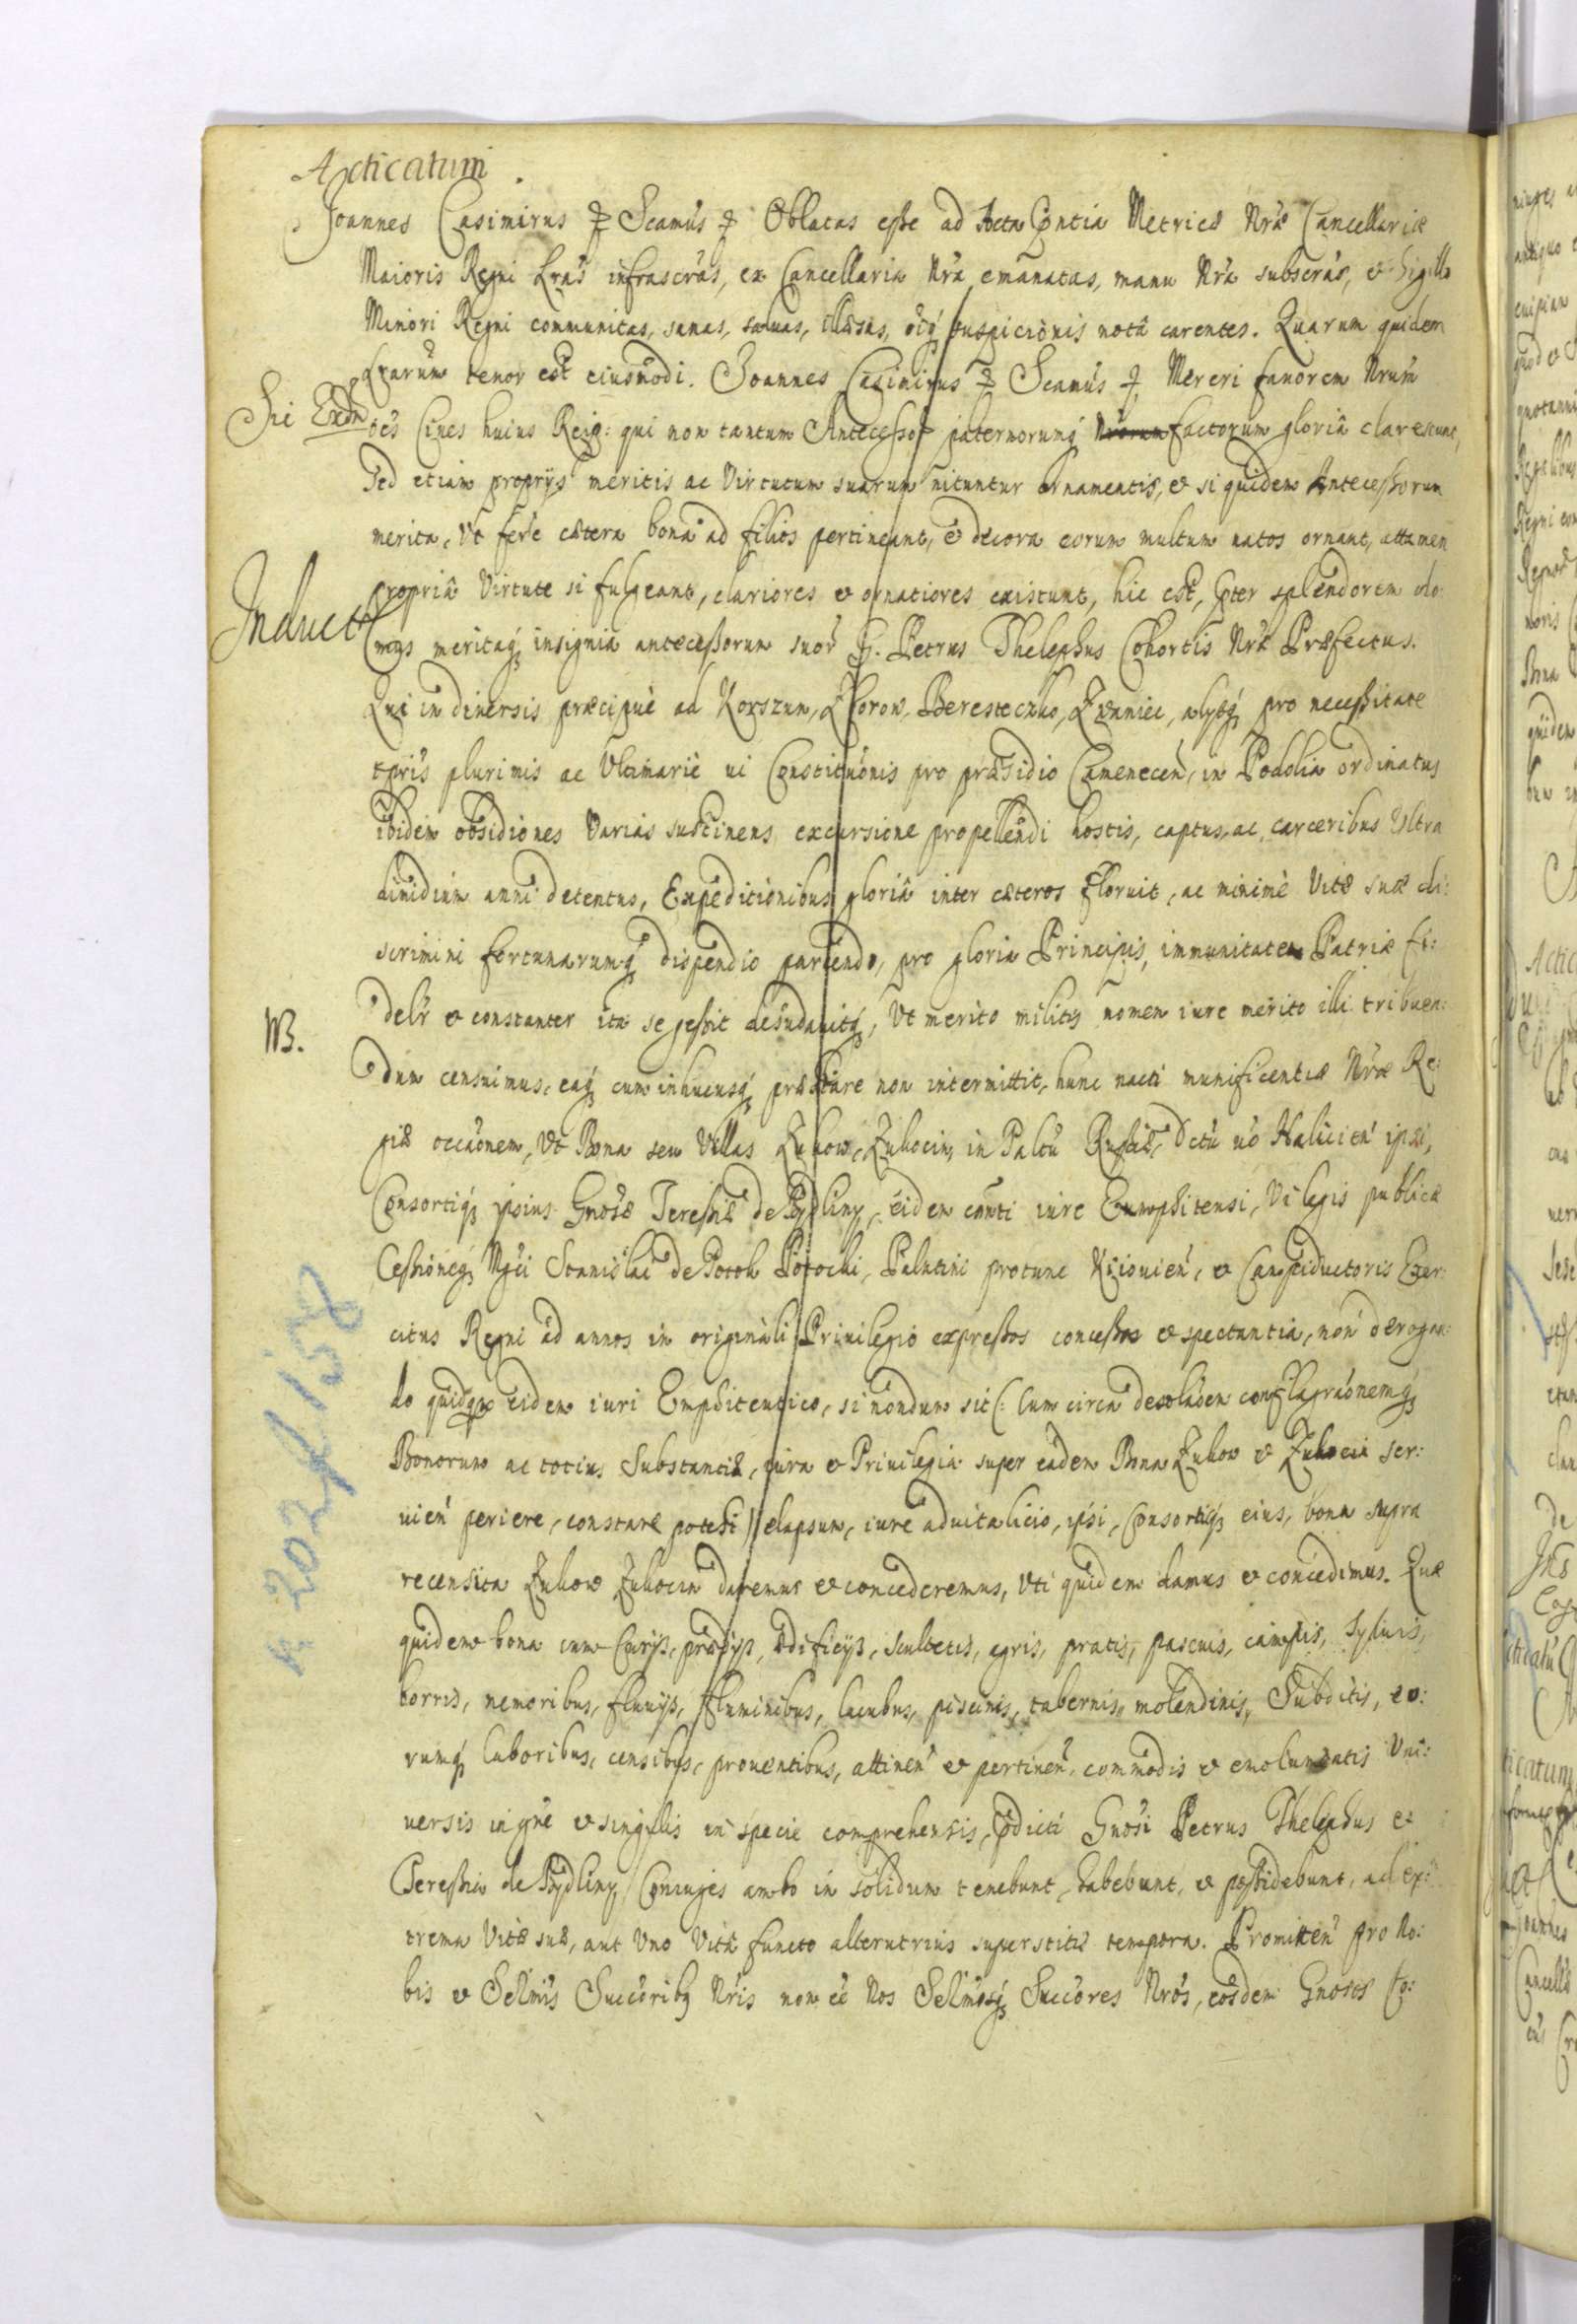 Acticatum
Joannes Casimirus Scamus Oblatas esse ad Acta Metrices Nrae Cancellariae
Maioris Regni Lras infrascras, ex Cancellaria Nra emanatas, manu Nra subscras, et Sigillo
Minori Regni communitas, sanas, saluas, illaesas, oiq suspicionis notâ carentes. Quarum quidem
Lrarum tenor est eiusmodi. Joannes Casimirus Scamus Mereri fauorem Nrum
Sri Exdn
oes Ciues huius Reip: qui non tantum Antecessor paternorumq factorum gloriâ clarescunt,
Sed etiam proprijs meritis ac Virtutum suarum nituntur ornamentis, et si quidem Antecessorum
merita, Vt fere caetera bona ad filios pertineant, et decora eorum multum natos ornant, attamen
Induct
propriâ Virtute si fulgeant, clariores et ornatiores existunt, hic est, pter splendorem do:
mus meritaq insignia antecessorum suor G. Petrus Thelephus Cohortis Nrae Praefectus.
Qui in diuersis praecipuè ad Korszun, Zborow, Beresteczko, Zwaniec, alysq pro necessitate
tpris plurimis ac Vltimariè ui Constituonis pro praesidio Camenecen, in Podolia ordinatus
ibidem obsidiones Varias sustinens excursione propellendi hostis, captus, ac carceribus Vltra
dimidium anni detentus, Expeditionibus gloriâ inter caeteros floruit, ac minimè Vitae suae di:
scrimini fortunarumq dispendio parcendo, pro gloria Principis, immunitate Patriae fi:
NB.
delr et constanter ita se gessit desudauitq, Vt merito militis nomen iure merito illi tribuen:
dum censuimus, eaq cum inhucusq praestare non intermittit, hunc nacti munificentiae Nrae Re:
giae occaonem, Vt Bona seu Villas Zukow, Zukocin, in Paltu Russiae, Dctu uo Halicien ipsi,
Consortiq ipsius Gnosae Teressiae de Pydliny, eidem canti iure Emophitensi, Vi legis publicae
Cessioneq Mgci Stanislai de Potok Potocki, Palatini protunc Kiiouien, et Campiductoris Exer:
citus Regni ad annos in originali Priuilegio expressos concessas et spectantia, non derogan:
do quidqm eidem iuri Emphiteutico, si nondum sit (: cum circa desolaoem conflagraonemq
Bonorum ac totius Substantiae, iura et Priuilegia super eadem Bona Zukow et Zukocin ser:
uien periere, constare potest :) elapsum, iure aduitalicio, ipsi, Consortiq eius, bona supra
recensita Zukow Zukocin daremus et concederemus, Vti quidem damus et concedimus. Quae
quidem bona cum Curijs, praedijs, aedificijs, scultetis, agris, pratis, pascuis, campis, Syluis,
borris, nemoribus, fluuijs, fluminibus, lacubus, piscinis, tabernis, molendinis, Subditis, eo:
rumq laboribus, censibus, prouentibus, attinen et pertinen, commodis et emolumentis Vni:
uersis in gne et singulis in specie comprehensis, pdicti Gnosi Petrus Thelephus et
Teressia de Pydliny Coniuges ambo in solidum tenebunt, habebunt, et possidebunt, ad ex:
trema Vitae suae, aut Vno Vitâ functo alterutrius superstitis tempora. Promitten pro No:
bis et Selmis Succoribq Nris non ee Nos Selmosq Succores Nros, eosdem Gnosos Co:
k 202 f 158